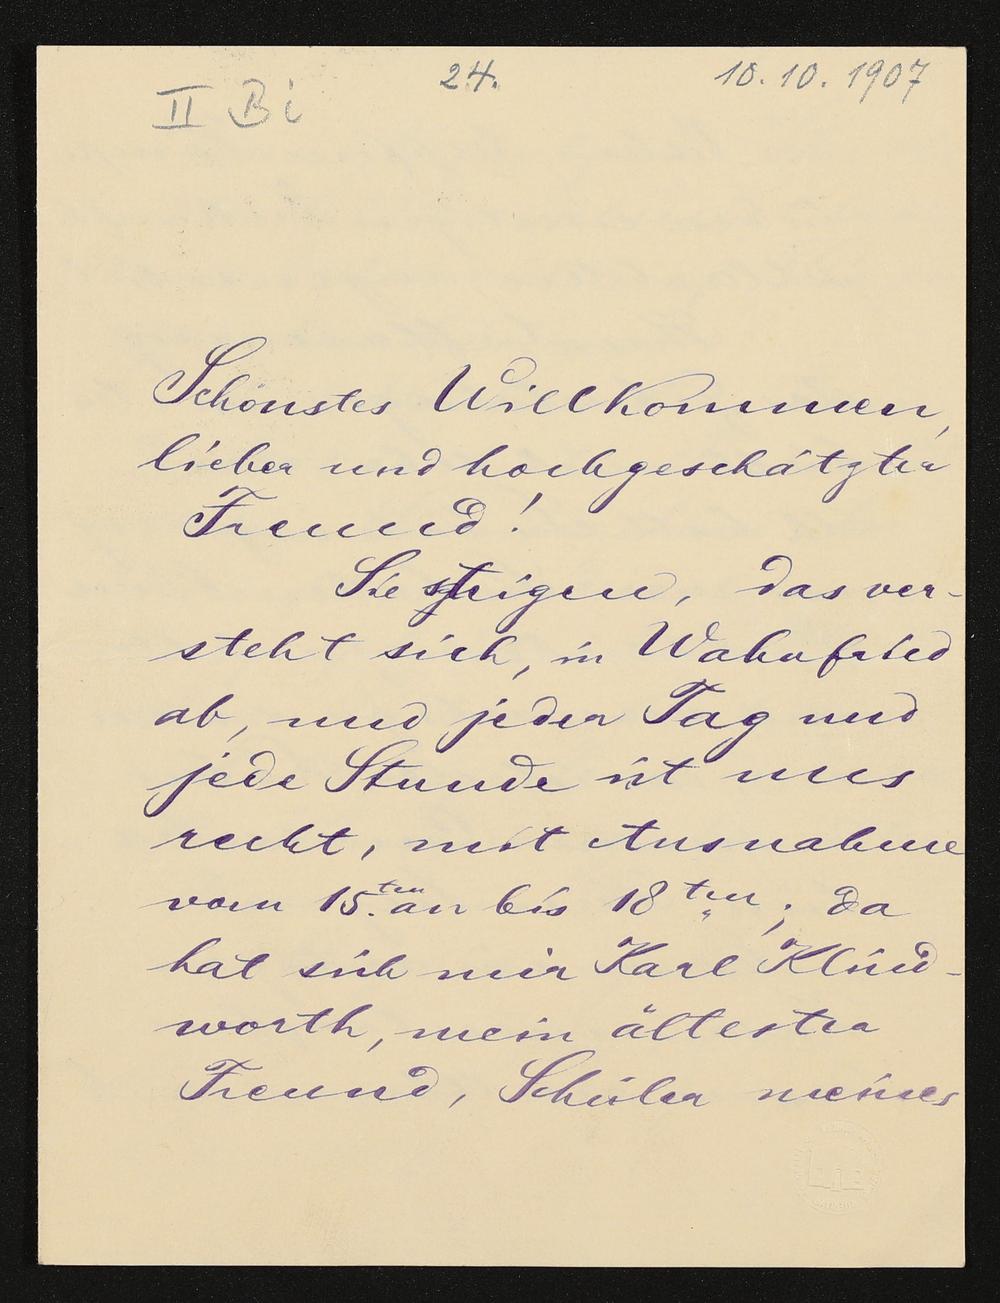 II Bi
24.
10. 10. 1907
Schönstes Willkommen,
lieber und hochgeschätzter
Freund!
Sie steigen, das ver-
steht sich, in Wahnfried
ab, und jeder Tag und
jede Stunde ist uns
recht, mit Ausnahme
vom 15.ten an bis 18ten; da
hat sich mir Karl Klind-
worth, mein ältester
Freund, Schüler meines